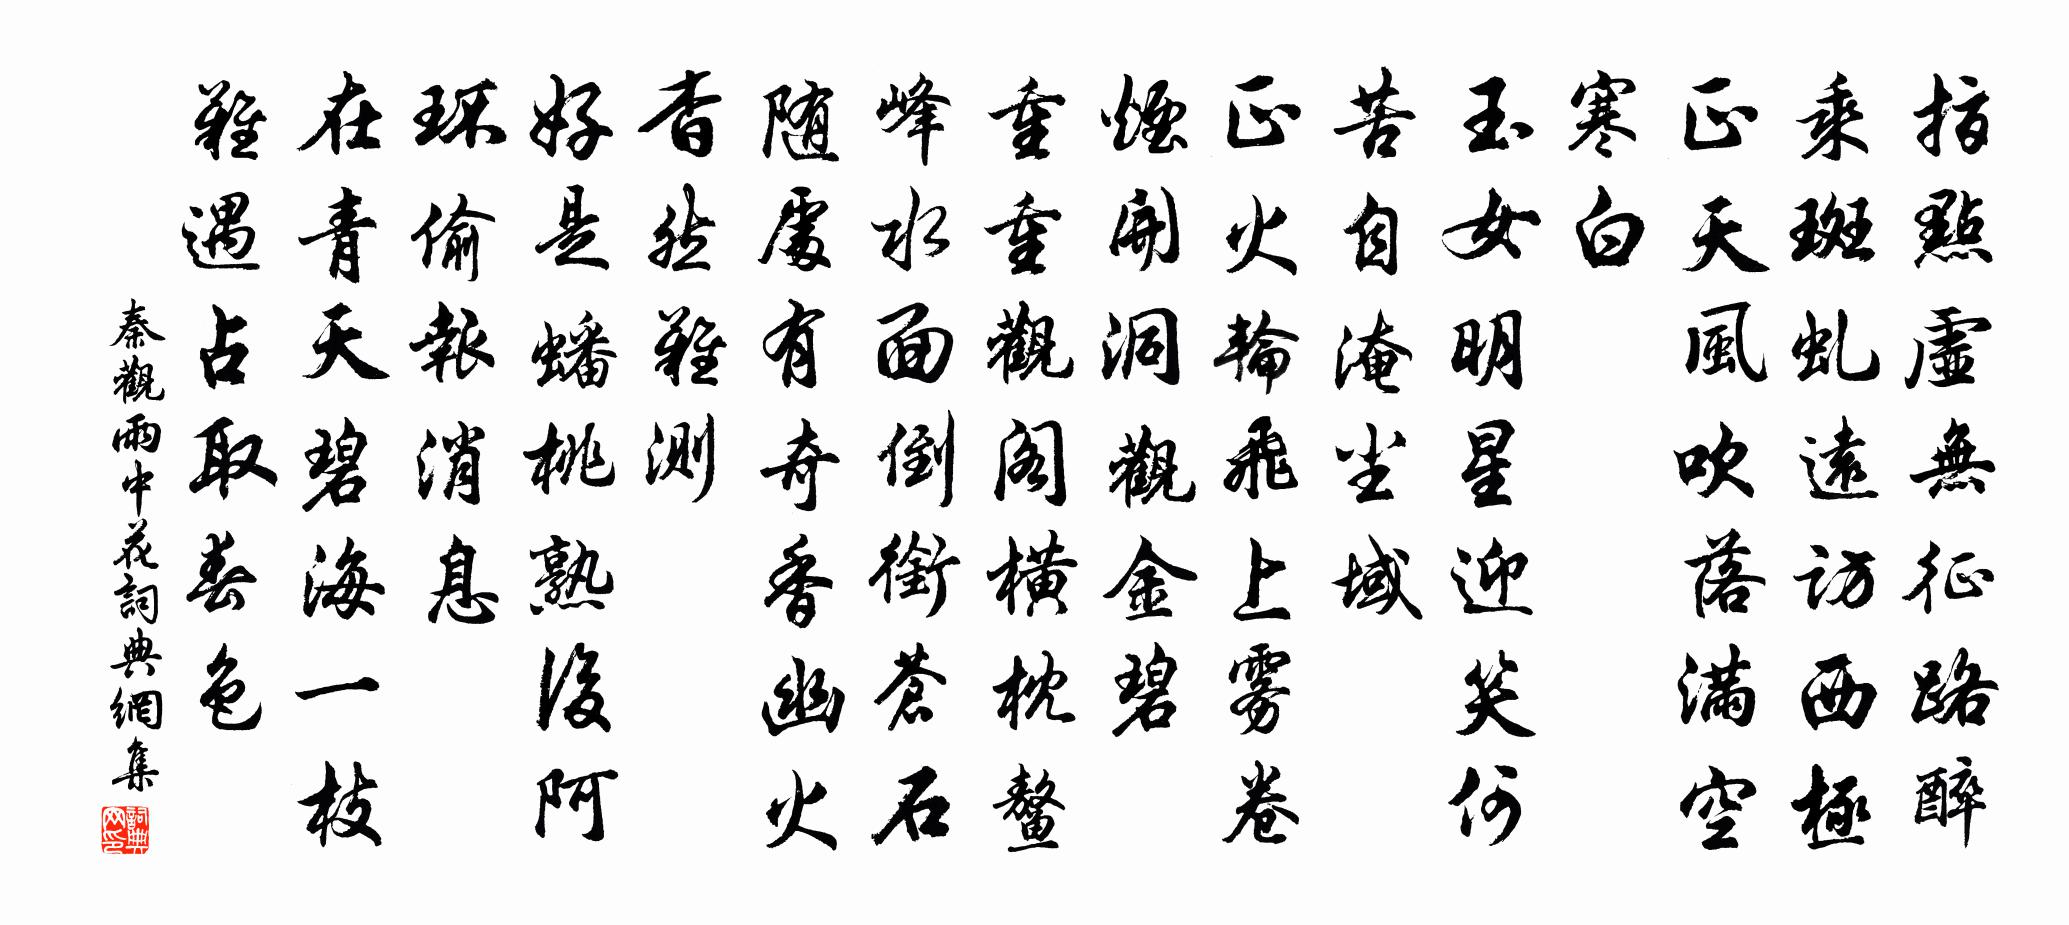 指點虛無征路醉
乘斑虬遠訪西極
正天風吹落滿空
寒白
玉女明星迎笑何
苦自淹尘域
正火輪飛上雾卷
煙開洞觀金碧
重重觀阁橫枕鳌
峰水面倒銜蒼石
随處有奇香幽火
杳然難測
好是蟠桃熟後阿
环偷報消息
在青天碧海一枝
難遇占取春色
秦觀雨中花詞典網集
詞典网印